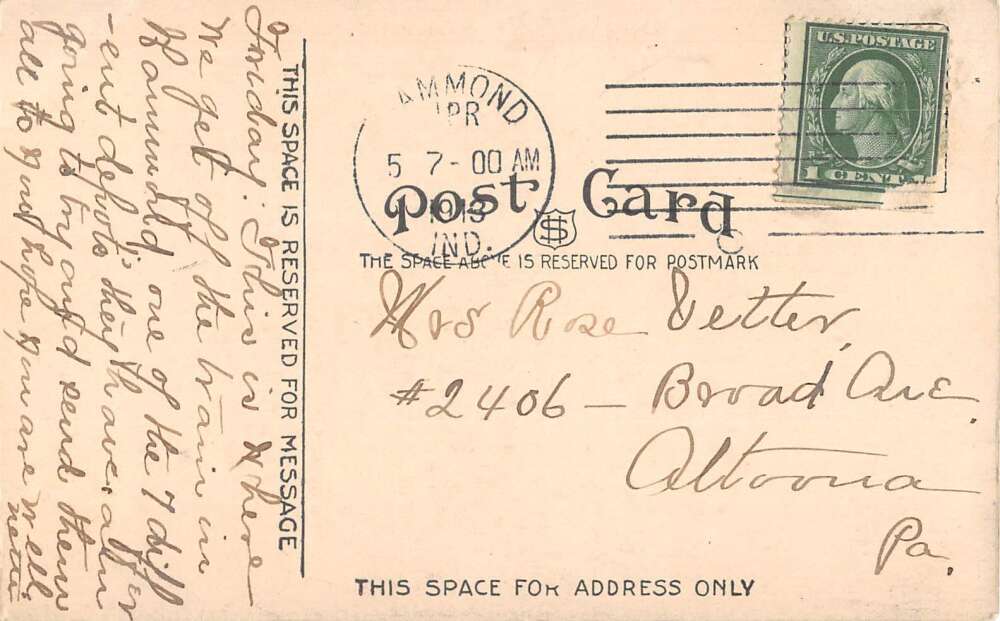 U.S. POSTAGE
1 CENT
AMMOND
APR
5 7-00 AM
1913
IND.
Post Card
THE SPACE ABOVE IS RESERVED FOR POSTMARK
Mrs Rose Vetter,
#2406 — Broad Ave.
Altoona
Pa.
THIS SPACE FOR ADDRESS ONLY
THIS SPACE IS RESERVED FOR MESSAGE
Friday: This is where
We get off the train in
Hammond, one of the 7 diff
-ent depots they have, am
going to try and send them
all to you, hope you are well.